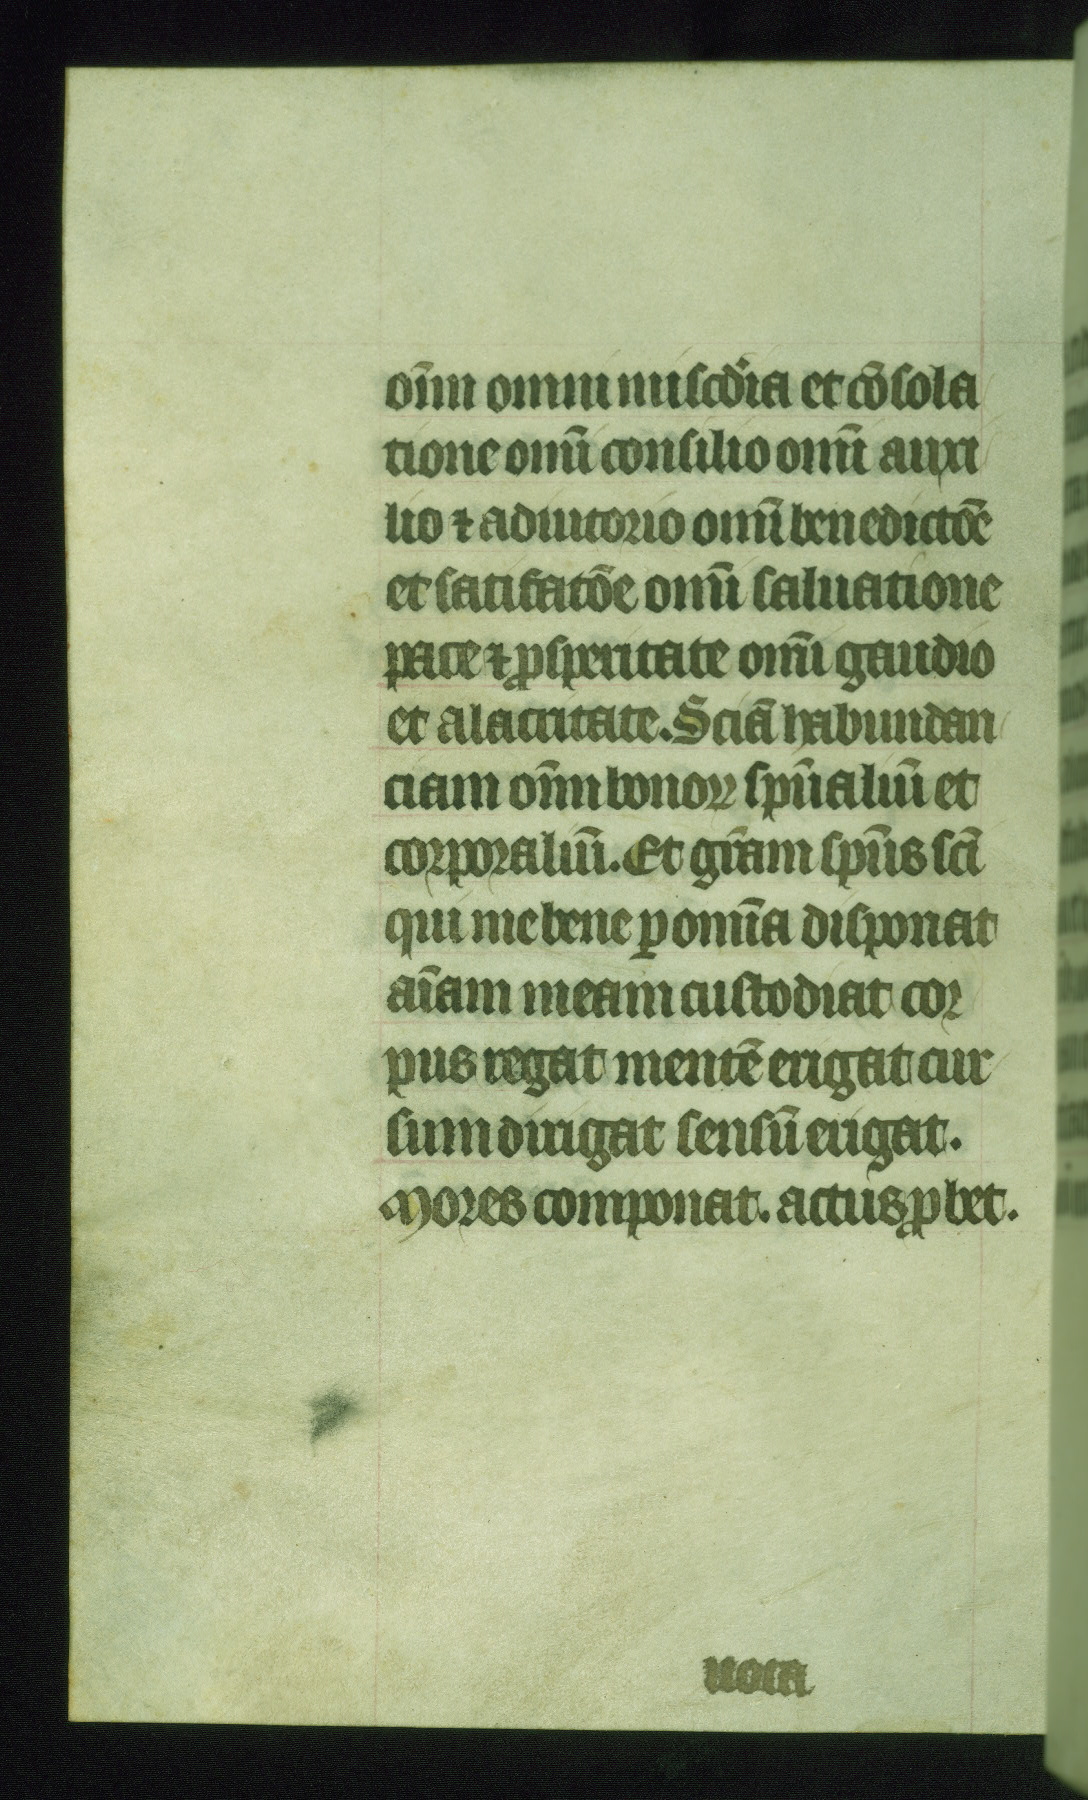 om̄n omni misc̄dia et cōsola
tione om̄i consilio om̄i auxi
lio ⁊ adiutorio om̄i benedictōe
et satifatōe om̄i saluatione
pace ⁊ ꝓsperitate om̄i gaudio
et alacritate. Sciā habundan
ciam om̄n bonoꝝ sp̄ualiū et
corporaliū. Et gr̄am sp̄us sc̄i
qui me bene ꝑ om̄ia disponat
aīam meam custodiat cor
pus regat mentē erigat cur
sum dirigat sensū erigat.
Mores componat. actus ꝓbet.
uota